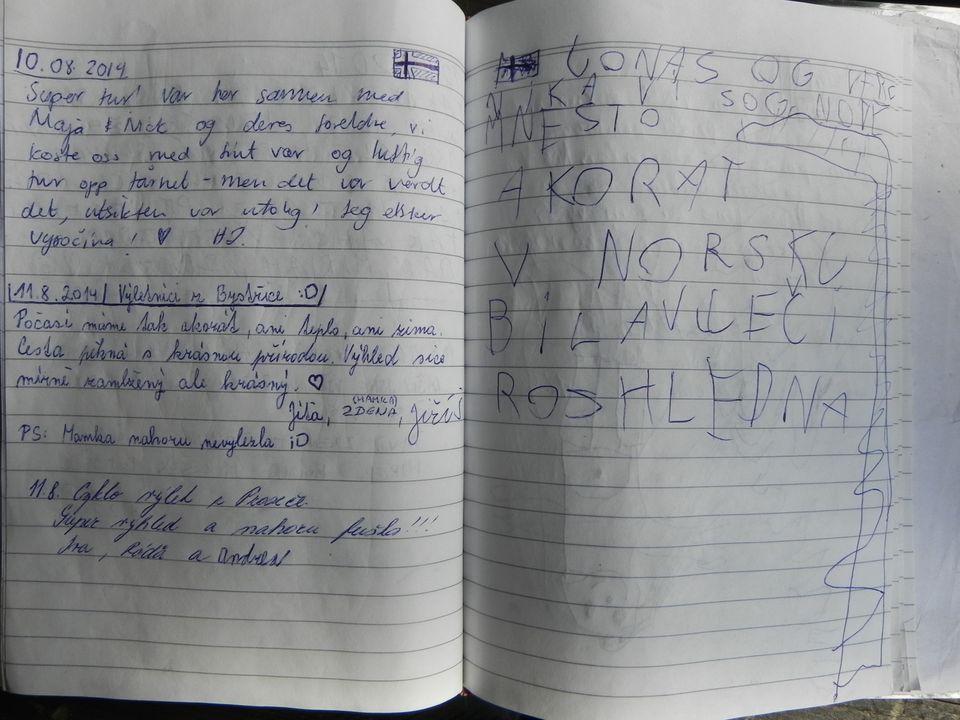 10.08.2014
Super tur! Var her sammen med
Maja & Nick og deres foreldre, vi
koste oss med fint vær og luftig
tur opp tårnet - men det var verdt
det, utsikten var utrolig! Jeg elsker
Vysočina! ♥ HJ.
11.8.2014 Výletníci z Bystřice :D
Počasí máme tak akorát, ani teplo, ani zima.
Cesta pěkná s krásnou přírodou. Výhled sice
mírně zamlžený ale krásný. ♡
Jíťa, (MAMKA) ZDENA, Jiříš
PS: Mamka nahoru nevylezla ;D
11.8. Cyklo výlet z
Super výhled a nahoru fuška!!!
Iva, Ráďa a Andrea
JONAS OG
MNESTO SOGNOM
AKORAT
V NORSKU
BÍLAVUEČÍ
ROSHLEDNA